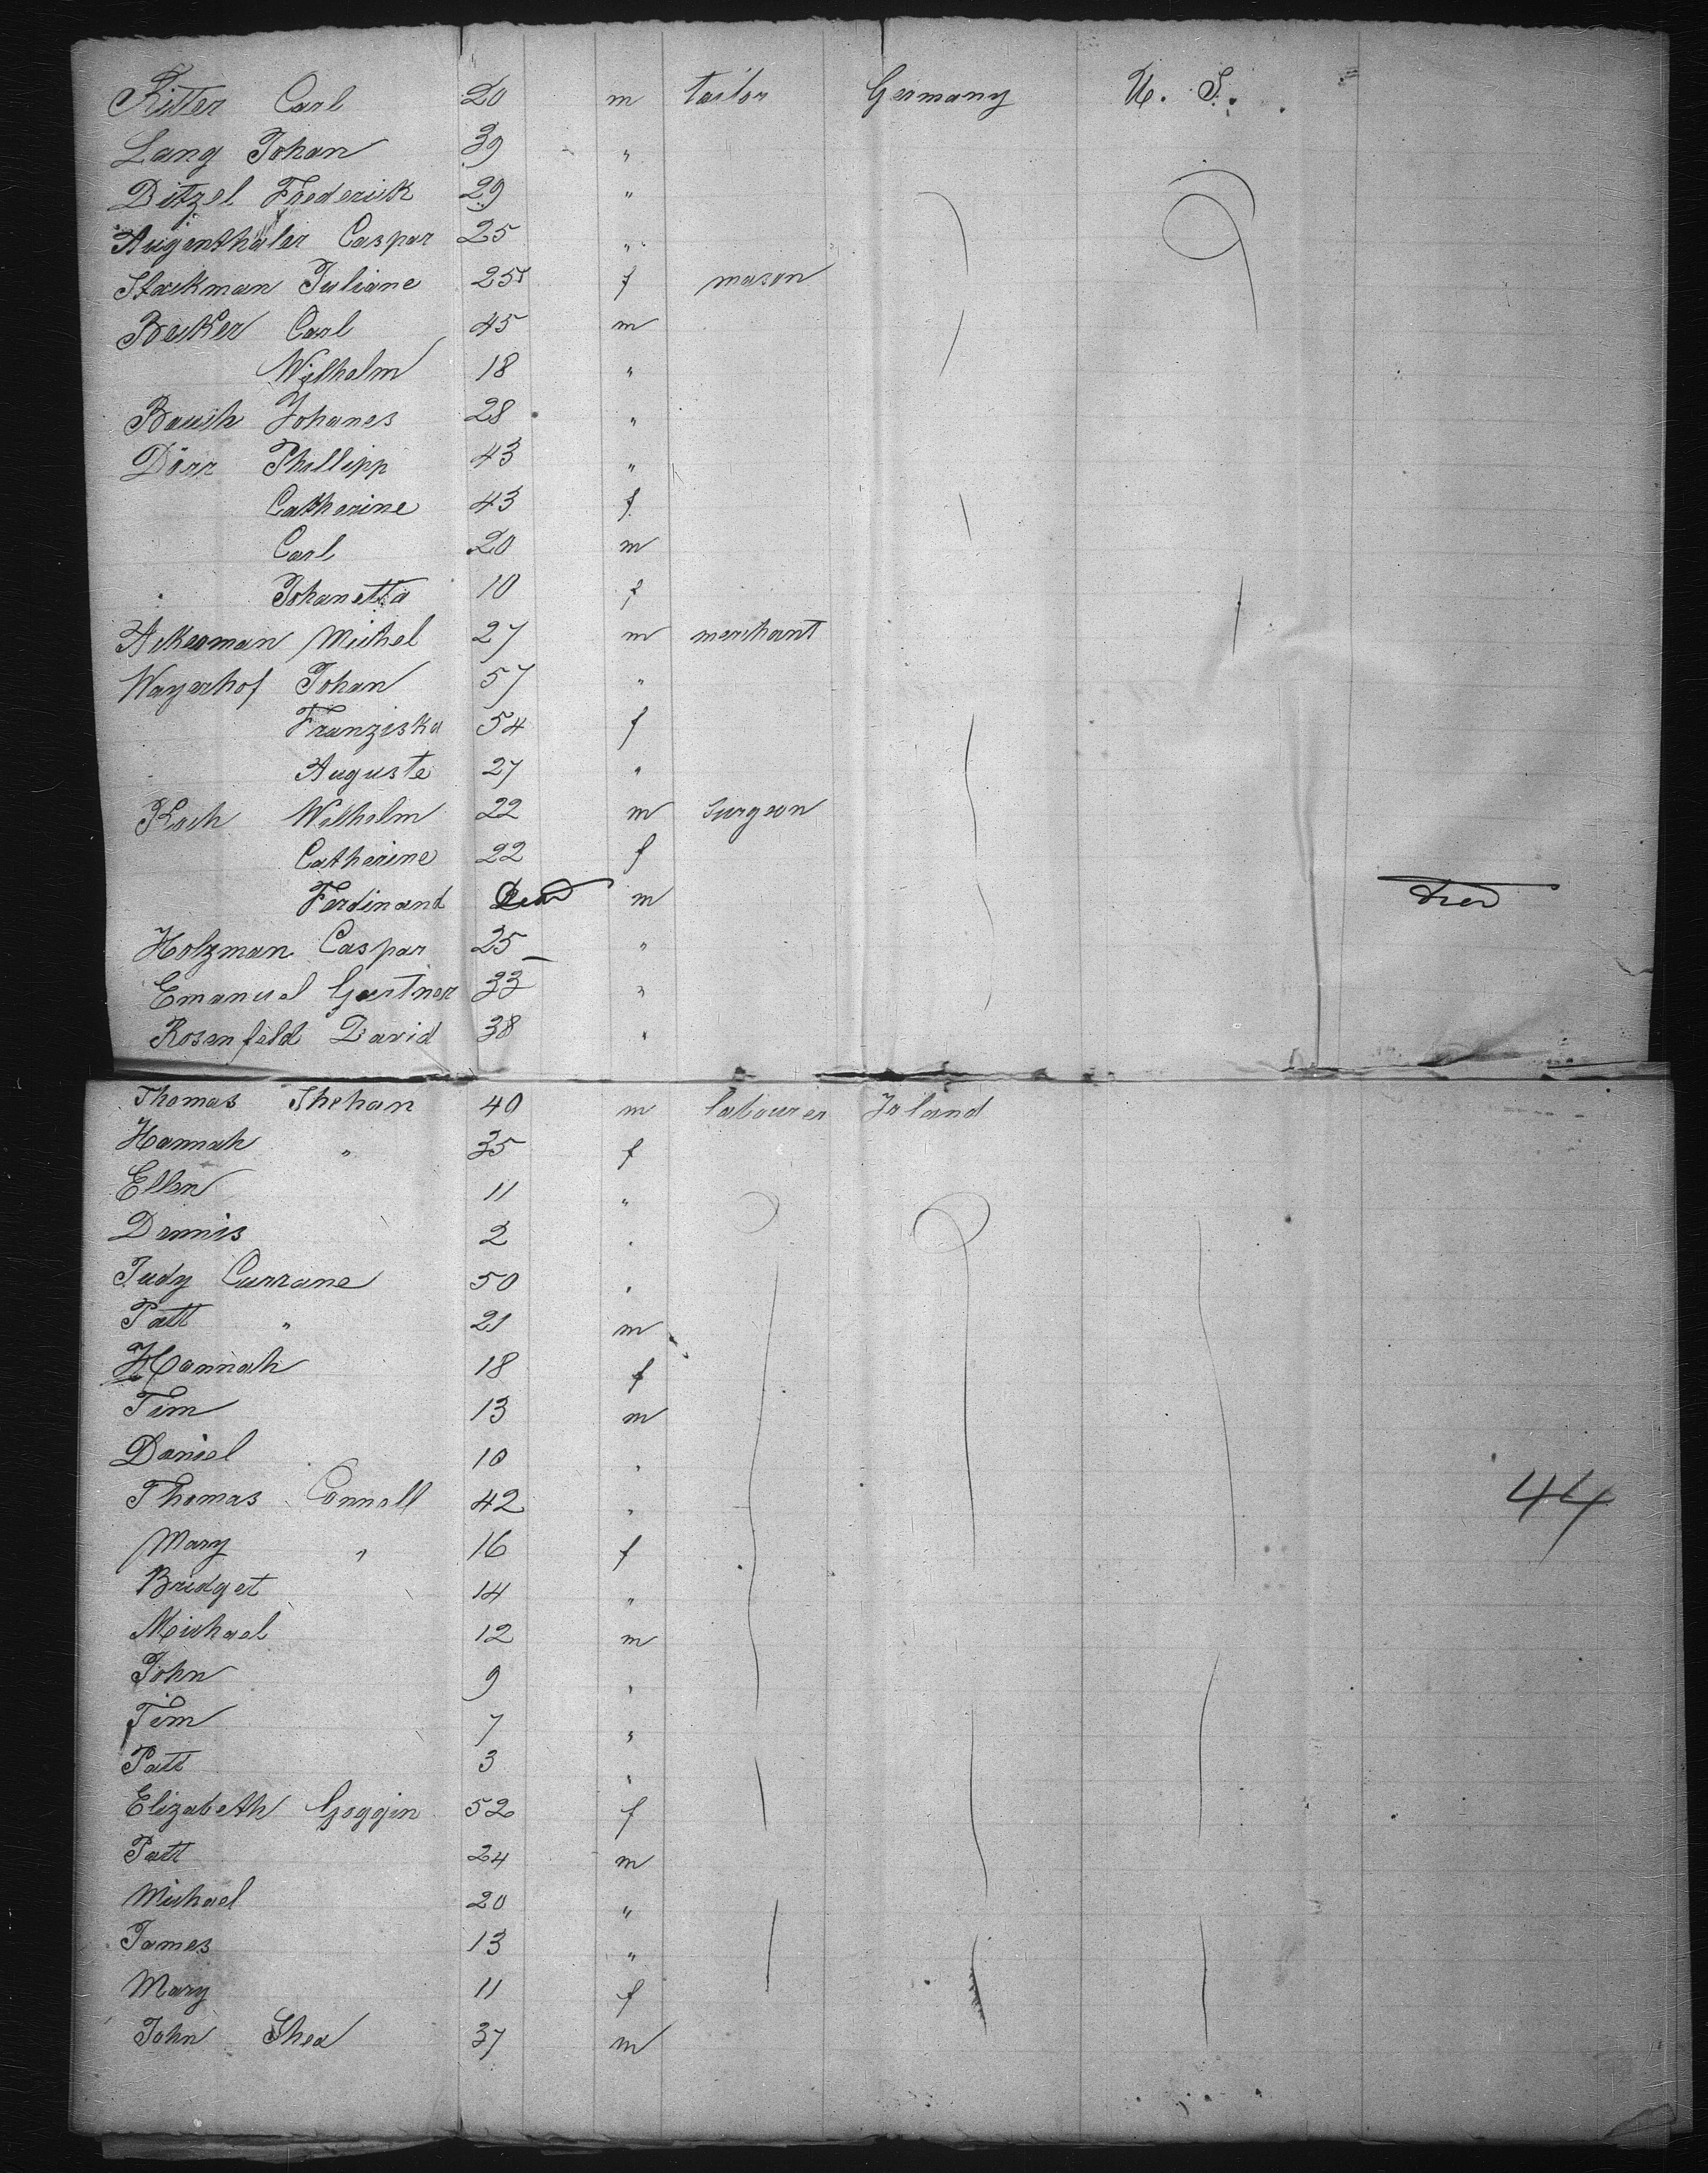 Ritter Carl 20 m tailor Germany U. S.
Lang Johan 39 "
Ditzel Frederick 29 "
Augenthaler Caspar 25 "
Stockman Juliane 25 f mason
Becker Carl 45 m
Wilhelm 18 "
Bausch Johanes 28 "
Dörr Phillipp 43 "
Catherine 43 f
Carl 20 m
Johanetta 10 f
Ackerman Michel 27 m merchant
Wayerhof Johan 57 "
Franziska 54 f
Auguste 27 "
Koch Wilhelm 22 m surgeon
Catherine 22 f
Ferdinand m died
Holzman Caspar 25 "
Emanuel Gertner 33 "
Rosenfeld David 38 "
Thomas Shehan 40 m labourer Irland
Hannah " 35 f
Ellen 11 "
Dennis 2 "
Judy Currane 50 "
Patt " 21 m
Hannah 18 f
Tim 13 m
Daniel 10 "
Thomas Connell 42 " 44
Mary " 16 f
Bridget 14 "
Michael 12 m
John 9 "
Tim 7 "
Patt 3 "
Elizabeth Goggin 52 f
Patt 24 m
Michael 20 "
James 13 "
Mary 11 f
John Shea 37 m